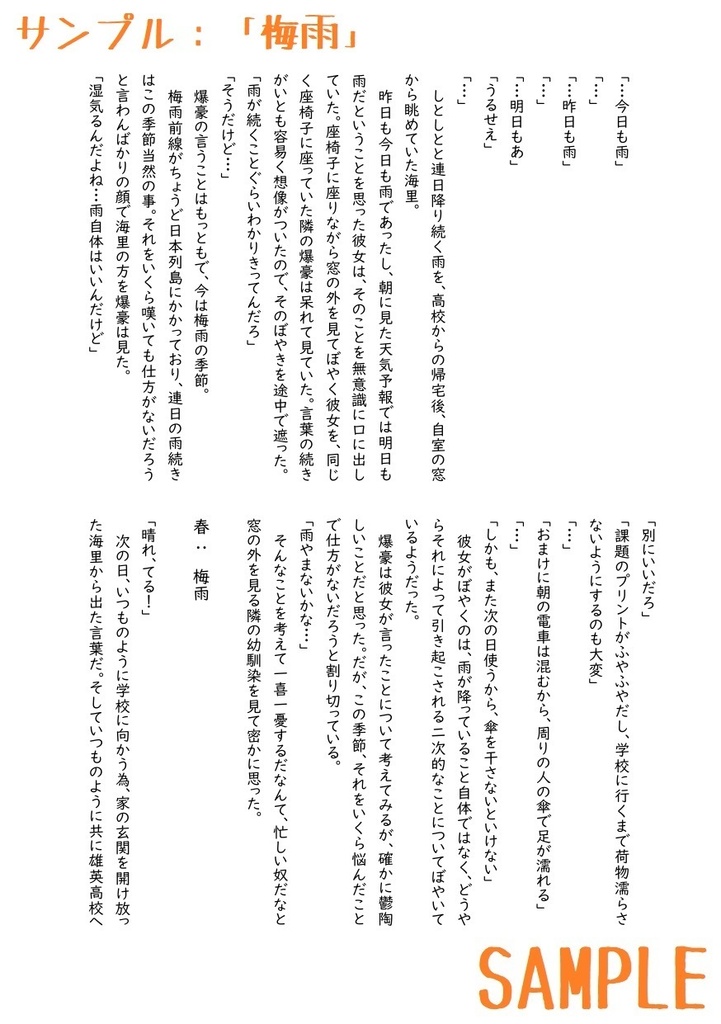 サンプル：「梅雨」
「…今日も雨」
「…」
「…昨日も雨」
「…」
「…明日もあ」
「うるせえ」
「…」
　しとしとと連日降り続く雨を、高校からの帰宅後、自室の窓
から眺めていた海里。
　昨日も今日も雨であったし、朝に見た天気予報では明日も
雨だということを思った彼女は、そのことを無意識に口に出し
ていた。座椅子に座りながら窓の外を見てぼやく彼女を、同じ
く座椅子に座っていた隣の爆豪は呆れて見ていた。言葉の続き
がいとも容易く想像がついたので、そのぼやきを途中で遮った。
「雨が続くことぐらいわかりきってんだろ」
「そうだけど…」
　爆豪の言うことはもっともで、今は梅雨の季節。
　梅雨前線がちょうど日本列島にかかっており、連日の雨続き
はこの季節当然の事。それをいくら嘆いても仕方がないだろう
と言わんばかりの顔で海里の方を爆豪は見た。
「湿気るんだよね…雨自体はいいんだけど」
「別にいいだろ」
「課題のプリントがふやふやだし、学校に行くまで荷物濡らさ
ないようにするのも大変」
「…」
「おまけに朝の電車は混むから、周りの人の傘で足が濡れる」
「…」
「しかも、また次の日使うから、傘を干さないといけない」
　彼女がぼやくのは、雨が降っていること自体ではなく、どうや
らそれによって引き起こされる二次的なことについてぼやいて
いるようだった。
　爆豪は彼女が言ったことについて考えてみるが、確かに鬱陶
しいことだと思った。だが、この季節、それをいくら悩んだこと
で仕方がないだろうと割り切っている。
「雨やまないかな…」
　そんなことを考えて一喜一憂するだなんて、忙しい奴だなと
窓の外を見る隣の幼馴染を見て密かに思った。
春：　梅雨
「晴れ、てる！」
　次の日、いつものように学校に向かう為、家の玄関を開け放っ
た海里から出た言葉だ。そしていつものように共に雄英高校へ
SAMPLE